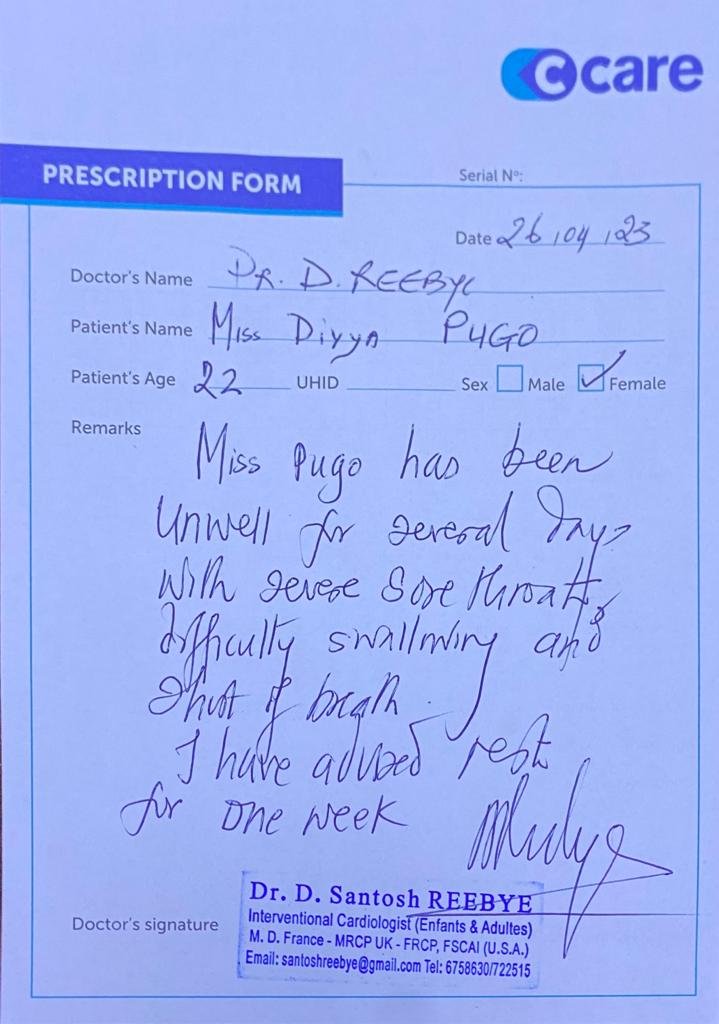 ccare
PRESCRIPTION FORM
Serial Nº:
Date 26/04/23
Doctor's Name DR. D. REEBYE
Patient's Name Miss Divya PUGO
Patient's Age 22 UHID Sex Male Female
Remarks
Miss Pugo has been
unwell for several days
with severe sore throat,
difficulty swallowing and
short of breath.
I have advised rest
for one week
Dr. D. Santosh REEBYE
Interventional Cardiologist (Enfants & Adultes)
M. D. France - MRCP UK - FRCP, FSCAI (U.S.A.)
Email: santoshreebye@gmail.com Tel: 6758630/722515
Doctor's signature